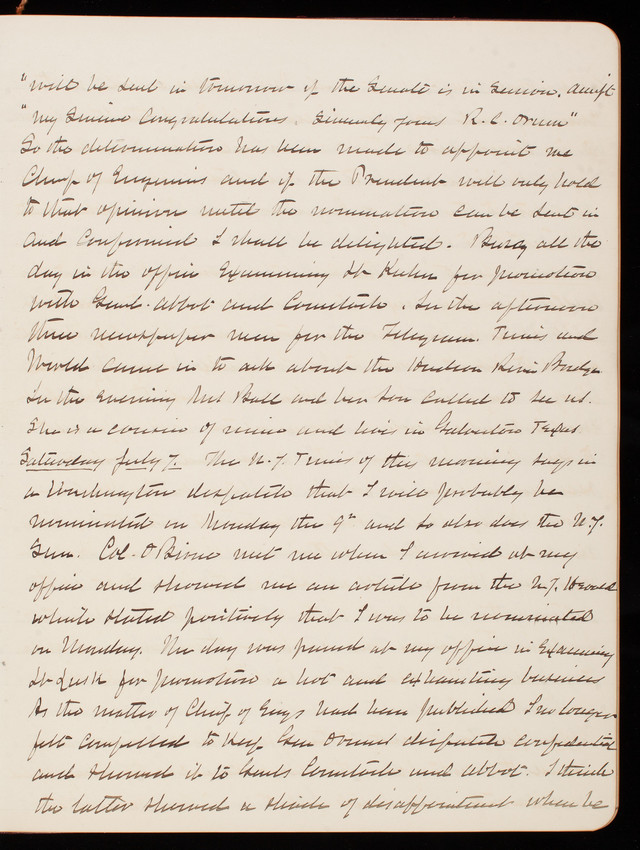 "will be sent in tomorrow if the Senate is in Session. Accept
"my Sincere Congratulations. Sincerely yours R. C. Drum"
So the determination has been made to appoint me
Chief of Engineers and if the President will only hold
to that opinion until the nomination can be sent in
and Confirmed I shall be delighted. Busy all the
day in the office Examining Lt Kuhn for promotion
with Genl. Abbot and Comstock. In the afternoon
three newspaper men for the Telegram. Times and
World came in to ask about the Hudson River Bridge
In the Evening Mrs Ball and her Son Called to see us.
She is a cousin of mine and lives in Galveston Texas
Saturday July 7. The N.Y. Times of this morning says in
a Washington despatch that I will probably be
nominated on Monday the 9th and so also does the N.Y.
Sun. Col. O'Birne met me when I arrived at my
office and showed me an article from the N.Y. Herald
which stated positively that I was to be nominated
on Monday. The day was passed at my office in Examining
Lt Lusk for promotion a hot and exhausting business
As the matter of Chief of Engrs had been published I no longer
felt Compelled to keep Gen Drums dispatch confidential
and showed it to Genls Comstock and Abbot. I think
the latter showed a shade of disappointment when he